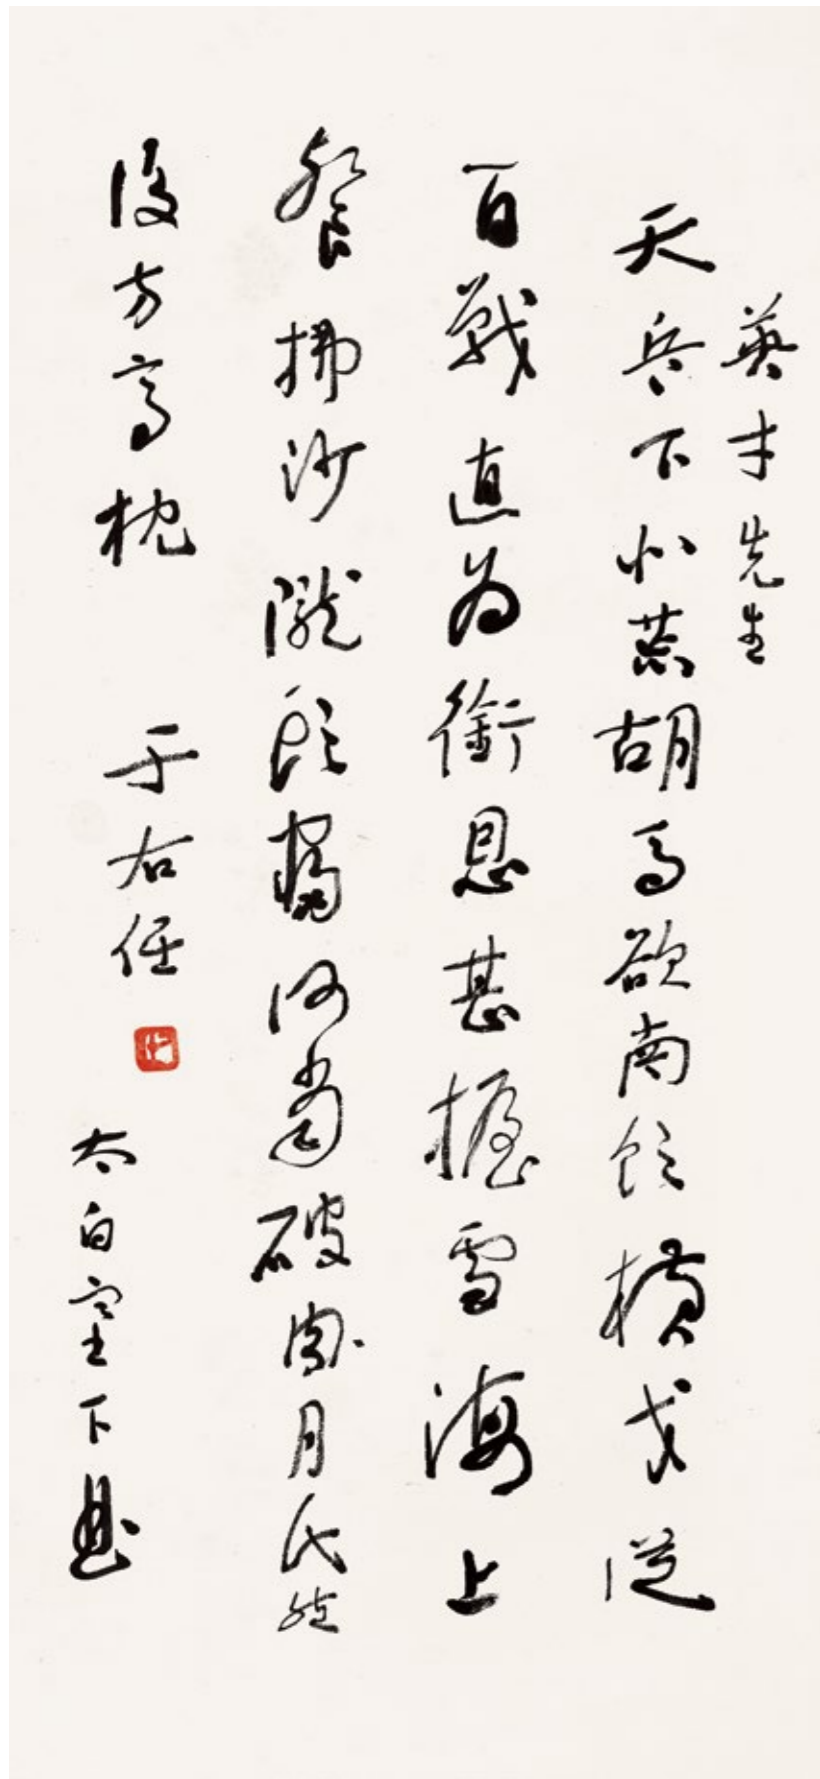 英才先生
天兵下北荒胡馬欲南飲橫戈從
百戰直為銜恩甚握雪海上
餐拂沙隴頭寢何當破月氏然
後方高枕 于右任
太白塞下曲